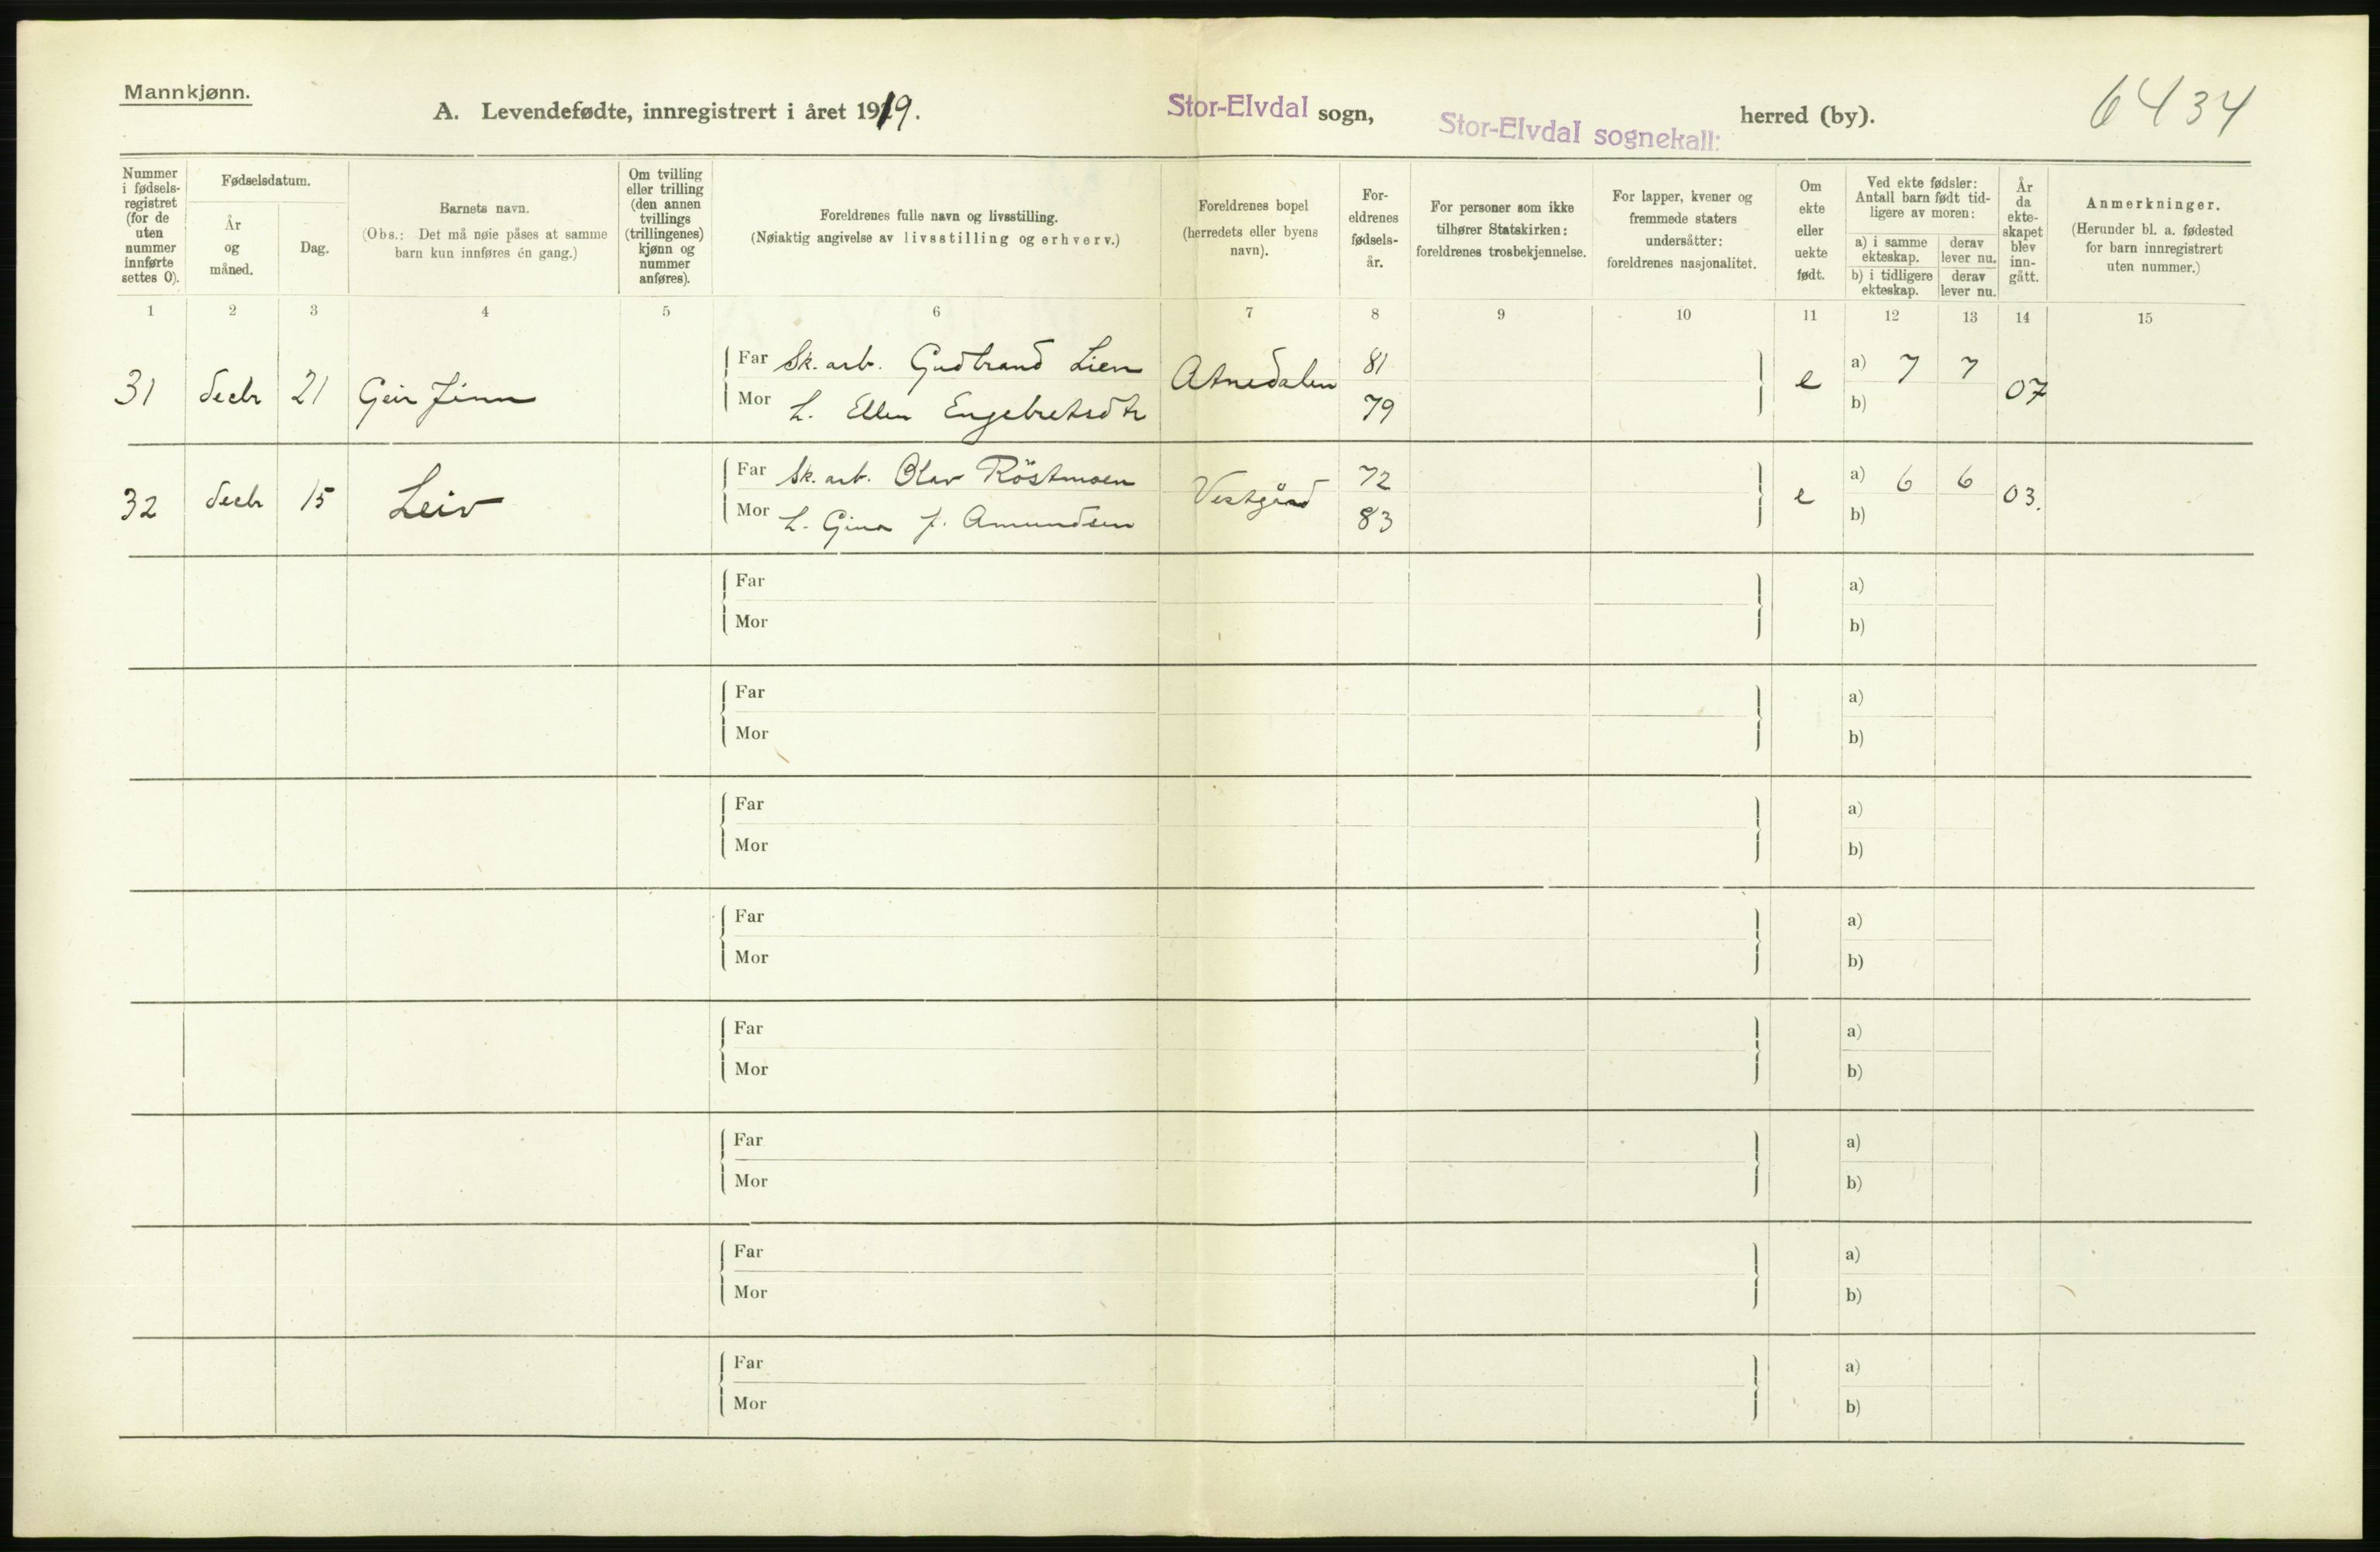 Mannkjønn.
A. Levendefødte, innregistrert i året 1919.
Stor-Elvdal sogn,
Stor-Elvdal sognekall:
herred (by).
6434
Nummer i fødsels- registret (for de uten nummer innførte settes 0).
Fødselsdatum.
År og måned.
Dag.
Barnets navn.
(Obs.: Det må nøie påses at samme barn kun innføres én gang.)
Om tvilling eller trilling (den annen tvillings (trillingenes) kjønn og nummer anføres).
Foreldrenes fulle navn og livsstilling.
(Nøiaktig angivelse av livsstilling og erhverv.)
Foreldrenes bopel (herredets eller byens navn).
For- eldrenes fødsels- år.
For personer som ikke tilhører Statskirken: foreldrenes trosbekjennelse.
For lapper, kvener og fremmede staters undersåtter: foreldrenes nasjonalitet.
Om ekte eller uekte født.
Ved ekte fødsler: Antall barn født tid- ligere av moren:
a) i samme ekteskap.
derav lever nu.
b) i tidligere ekteskap.
derav lever nu.
År da ekte- skapet blev inn- gått.
Anmerkninger.
(Herunder bl. a. fødested for barn innregistrert uten nummer.)
1 2 3 4 5 6 7 8 9 10 11 12 13 14 15
31 decbr 21 Geir Finn
Far Sk. arb. Gudbrand Lien
Mor h. Ellen Engebretsdtr
Atnedalen
81
79
e
a) 7 7
b)
07
32 decbr 15 Leiv
Far Sk. arb. Olav Röstmoen
Mor h. Gina J. Amundsen
Vestgård
72
83
e
a) 6 6
b)
03.
Far a)
Mor b)
Far a)
Mor b)
Far a)
Mor b)
Far a)
Mor b)
Far a)
Mor b)
Far a)
Mor b)
Far a)
Mor b)
Far a)
Mor b)